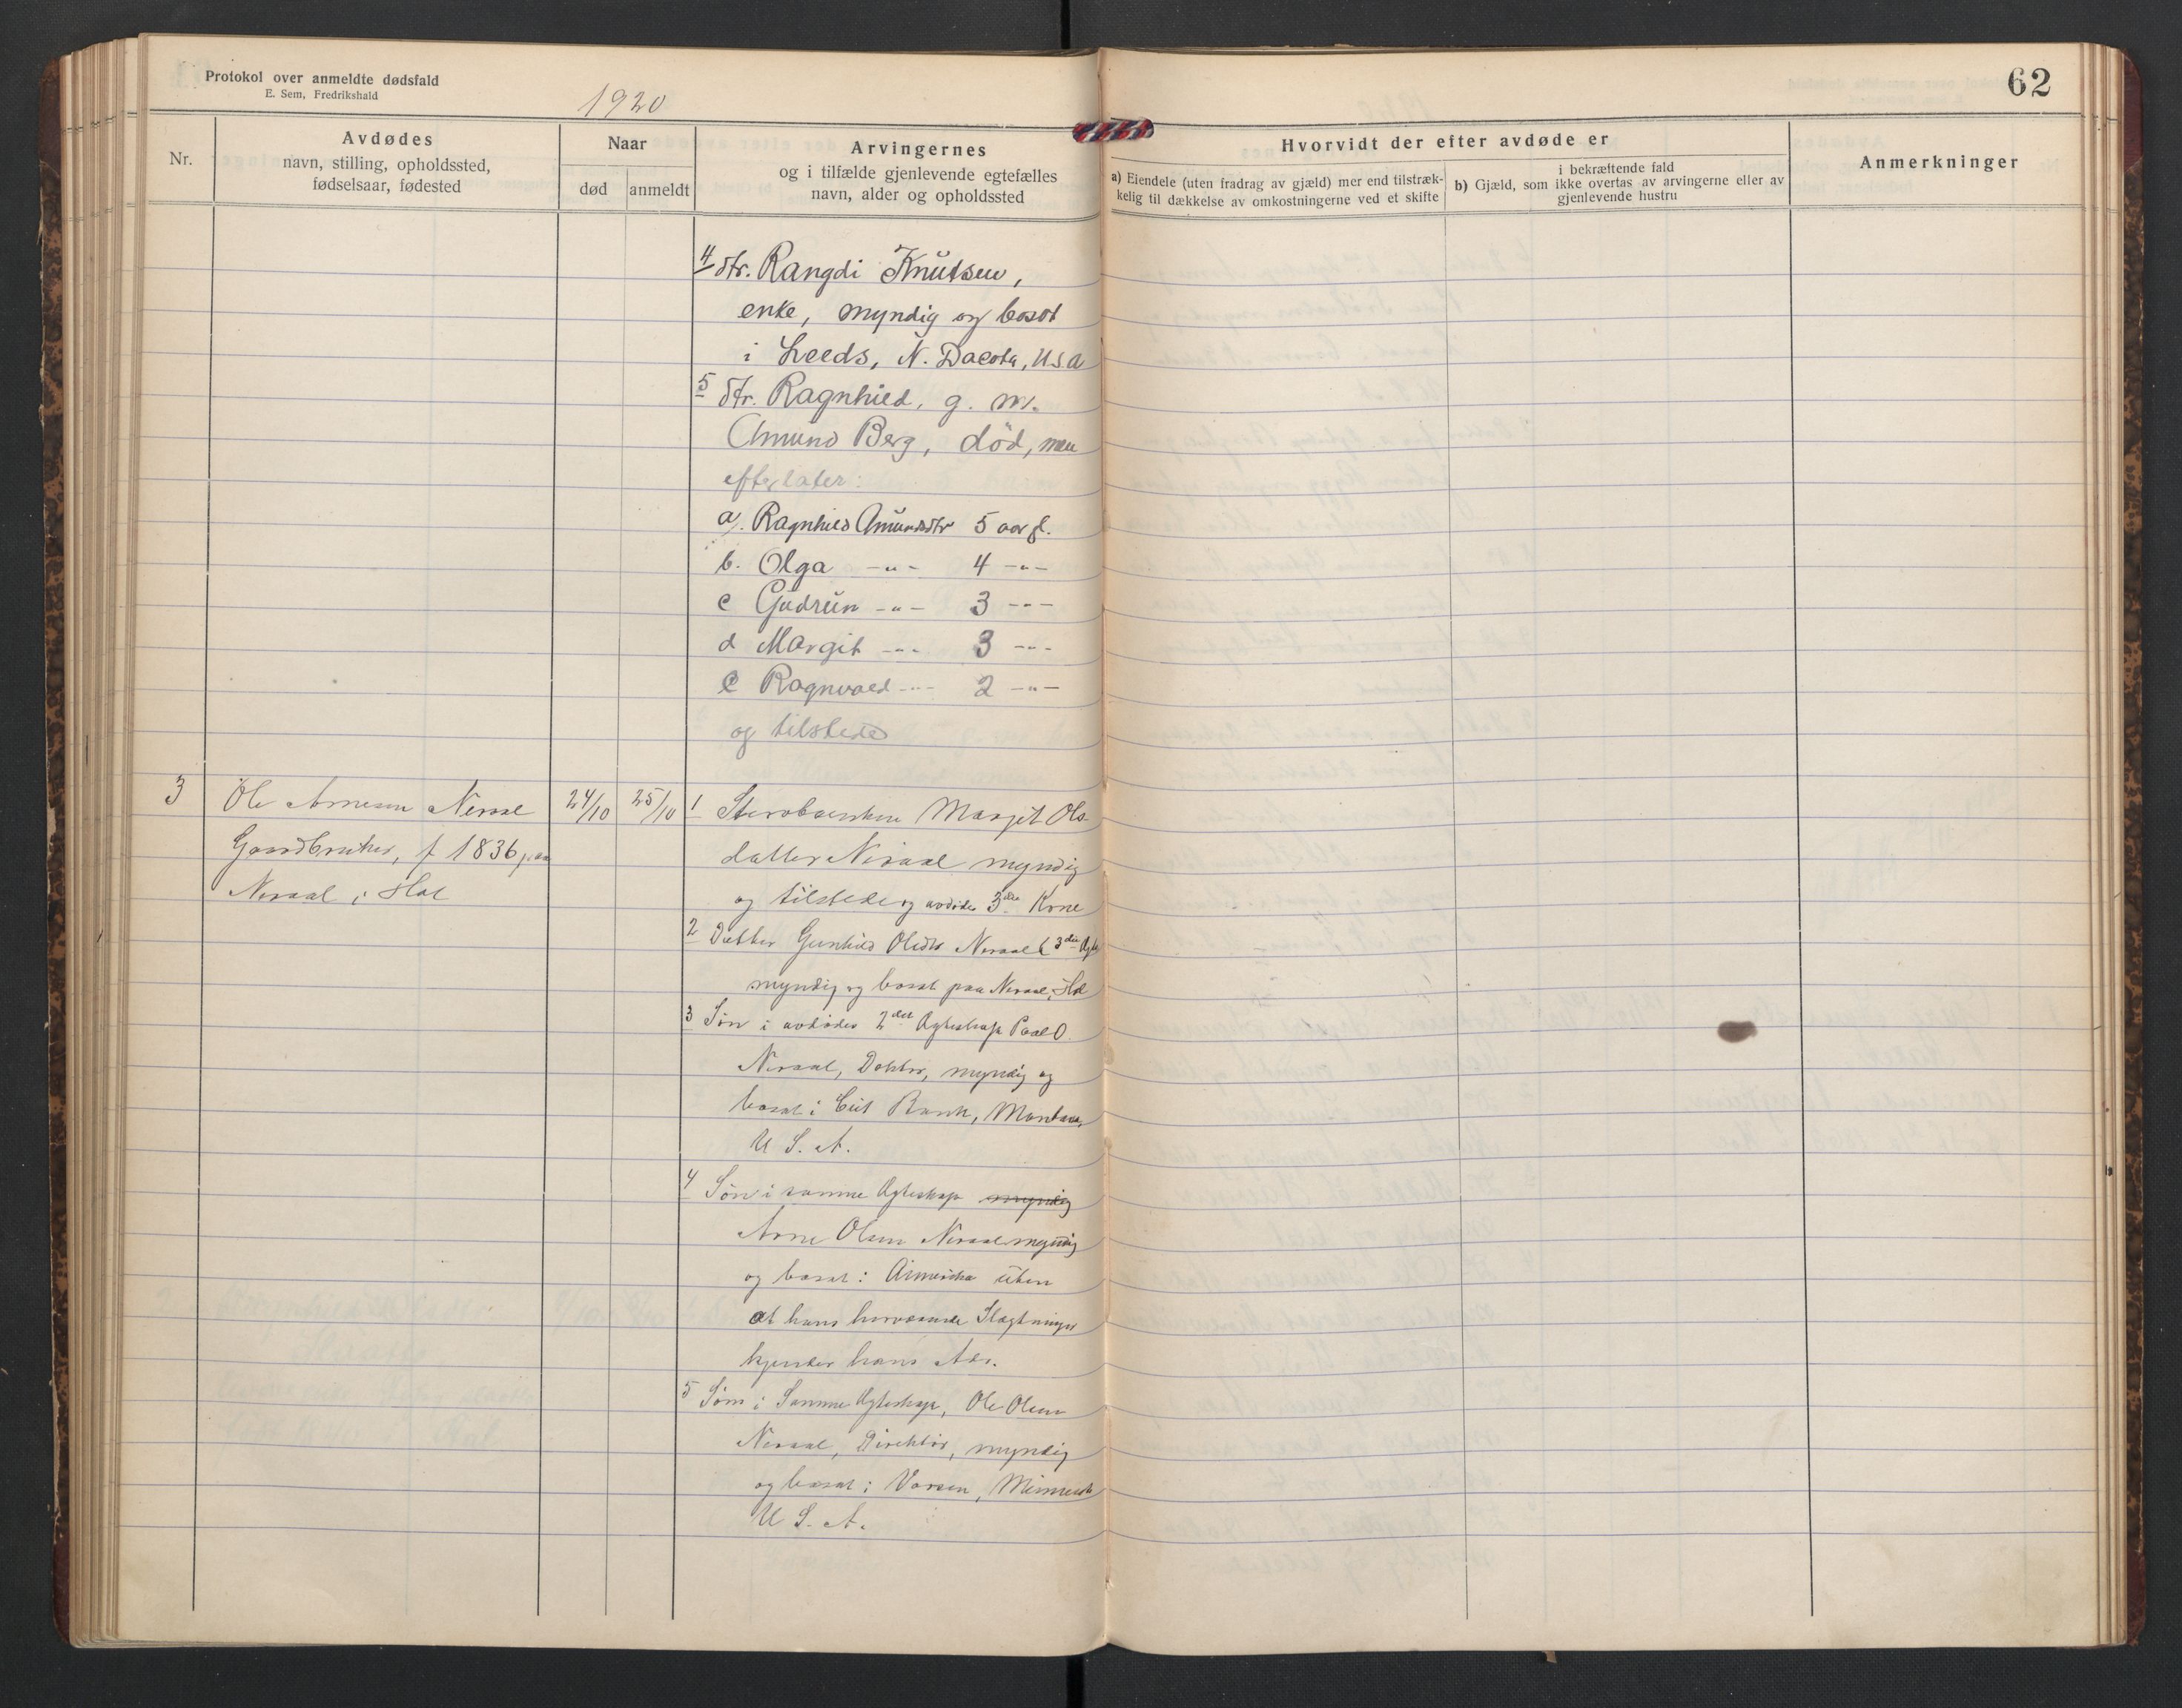 Protokol over anmeldte dødsfald
E. Sem, Fredrikshald
1920
62
Nr.
Avdødes
navn, stilling, opholdssted,
fødselsaar, fødested
Naar
død
anmeldt
Arvingernes
og i tilfælde gjenlevende egtefælles
navn, alder og opholdssted
Hvorvidt der efter avdøde er
a) Eiendele (uten fradrag av gjæld) mer end tilstræk-
kelig til dækkelse av omkostningerne ved et skifte
i bekræftende fald
b) Gjæld, som ikke overtas av arvingerne eller av
gjenlevende hustru
Anmerkninger
4 dtr. Rangdi Knutsen,
enke, myndig og bosat
i Leeds, N. Dacota, U.S.A
5 dtr. Ragnhild, g. m.
Amund Berg, død, men
efterlater:
a. Ragnhild Amundsdtr 5 aar gl.
b. Olga -"- 4 -"-
c Gudrun -"- 3 -"-
d Margit -"- 3 -"-
e Ragnvald -"- 2 -"-
og tilstede
3
Ole Arnesen Neraal
Gaardbruker, f 1836 paa
Neraal i Hol
24/10
25/10
1 Margit Ols-
datter Neraal myndig
og tilstede og avdødes 3die Kone
2 Datter Gunhild Olsdtr Neraal
myndig og bosat paa Neraal, Hol
3 Søn i avdødes 2det Ægteskap Paal O.
Neraal, Doktor, myndig og
bosat i Cut Bank, Montana,
U. S. A.
4 Søn i samme Ægteskap myndig
Arne Olsen Neraal myndig
og bosat i Amerika uten
at hans herværende Slægtninger
kjender hans Adr.
5 Søn i Samme Ægteskap, Ole Olsen
Neraal, Direktør, myndig
og bosat i
U. S. A.